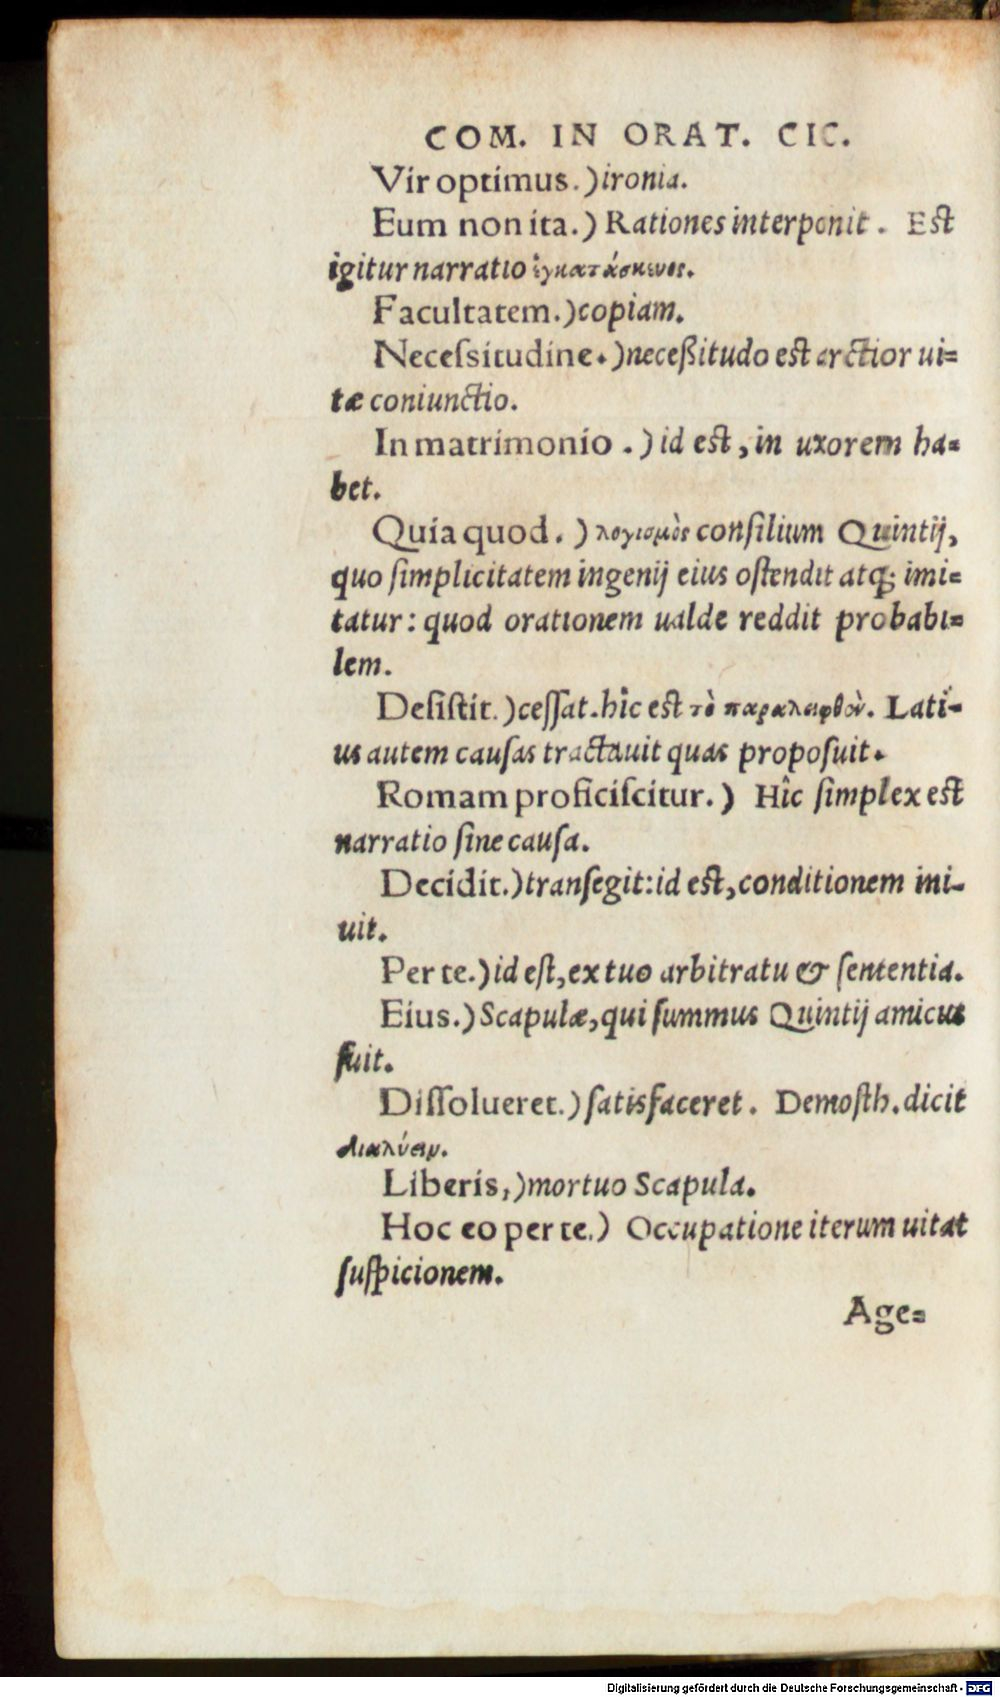 COM. IN ORAT. CIC.
Vir optimus.) ironia.
Eum non ita.) Rationes interponit. Est
igitur narratio ἐγκατάσκευος.
Facultatem.) copiam.
Neceſsitudine.) neceßitudo est arctior ui=
tæ coniunctio.
In matrimonio.) id est, in uxorem ha=
bet.
Quia quod.) λογισμὸς conſilium Quintij,
quo ſimplicitatem ingenij eius oſtendit atq; imi=
tatur: quod orationem ualde reddit probabi=
lem.
Deſiſtit.) ceſſat. hîc est τὸ παραλειφθὲν. Lati=
us autem cauſas tractauit quas propoſuit.
Romam proficiſcitur.) Hîc ſimplex est
narratio ſine cauſa.
Decidit.) tranſegit: id est, conditionem ini=
uit.
Per te.) id eſt, ex tuo arbitratu & ſententia.
Eius.) Scapulæ, qui ſummus Quintij amicus
fuit.
Diſſolueret.) ſatisfaceret. Demoſth. dicit
διαλύειν.
Liberis,) mortuo Scapula.
Hoc eo per te.) Occupatione iterum uitat
ſuſpicionem.
Age=
Digitalisierung gefördert durch die Deutsche Forschungsgemeinschaft - DFG